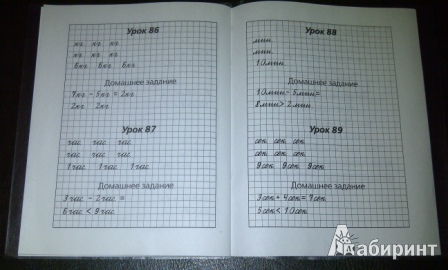 Урок 86
кг кг кг
кг кг кг
6кг 6кг 6кг
Домашнее задание
7кг - 5кг = 2кг
2кг 2кг
Урок 87
час час час
час час час
1 час 1 час 1 час
Домашнее задание
3 час - 2 час =
6 час < 9 час
Урок 88
мин
мин
10мин
Домашнее задание
10мин - 5мин=
8мин > 2мин
Урок 89
сек сек сек
сек сек сек
9сек 9сек 9сек
Домашнее задание
3сек + 4сек = 7сек
5сек < 10сек
Лабиринт